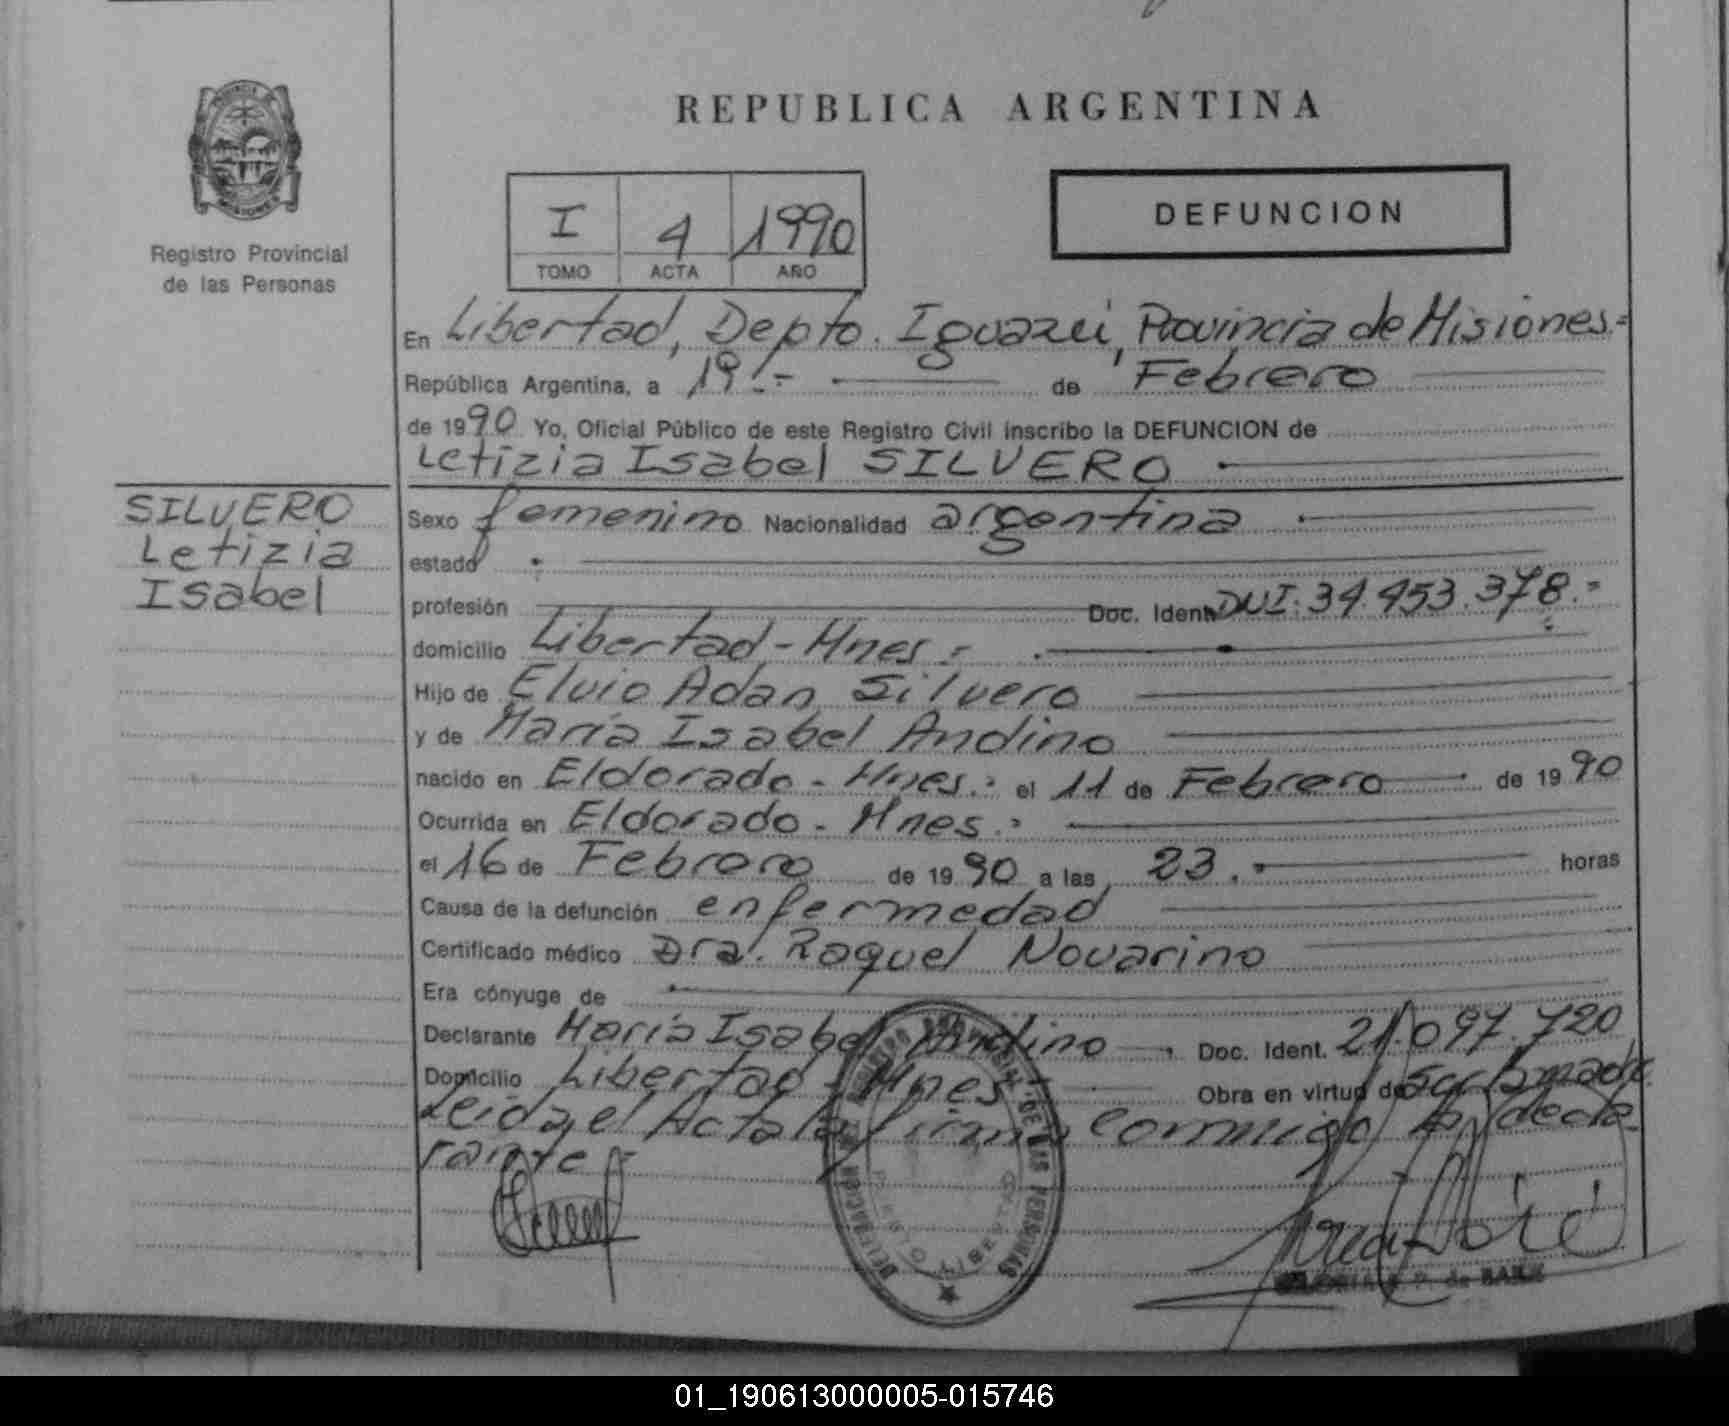 REPUBLICA ARGENTINA
PROVINCIA DE
MISIONES
Registro Provincial
de las Personas
I 4 1990
TOMO ACTA AÑO
DEFUNCION
En Libertad, Depto. Iguazú, Provincia de Misiones.=
República Argentina, a 19.- de Febrero
de 1990 Yo, Oficial Público de este Registro Civil inscribo la DEFUNCION de
Letizia Isabel SILVERO
SILVERO
Letizia
Isabel
Sexo femenino Nacionalidad argentina
estado
profesión Doc. Ident. DNI. 34.453.378.=
domicilio Libertad - Mnes.=
Hijo de Elvio Adan Silvero
y de María Isabel Andino
nacido en Eldorado - Mnes.= el 11 de Febrero de 1990
Ocurrida en Eldorado - Mnes.=
el 16 de Febrero de 1990 a las 23. horas
Causa de la defunción enfermedad
Certificado médico Dra. Raquel Novarino
Era cónyuge de
Declarante María Isabel Andino Doc. Ident. 21.097.720
Domicilio Libertad - Mnes.- Obra en virtud de
Leida el Acta la firma conmigo la decla-
rante.-
REGISTRO PROVINCIAL DE LAS PERSONAS
DELEGACION
LIBERTAD
de
01_190613000005-015746